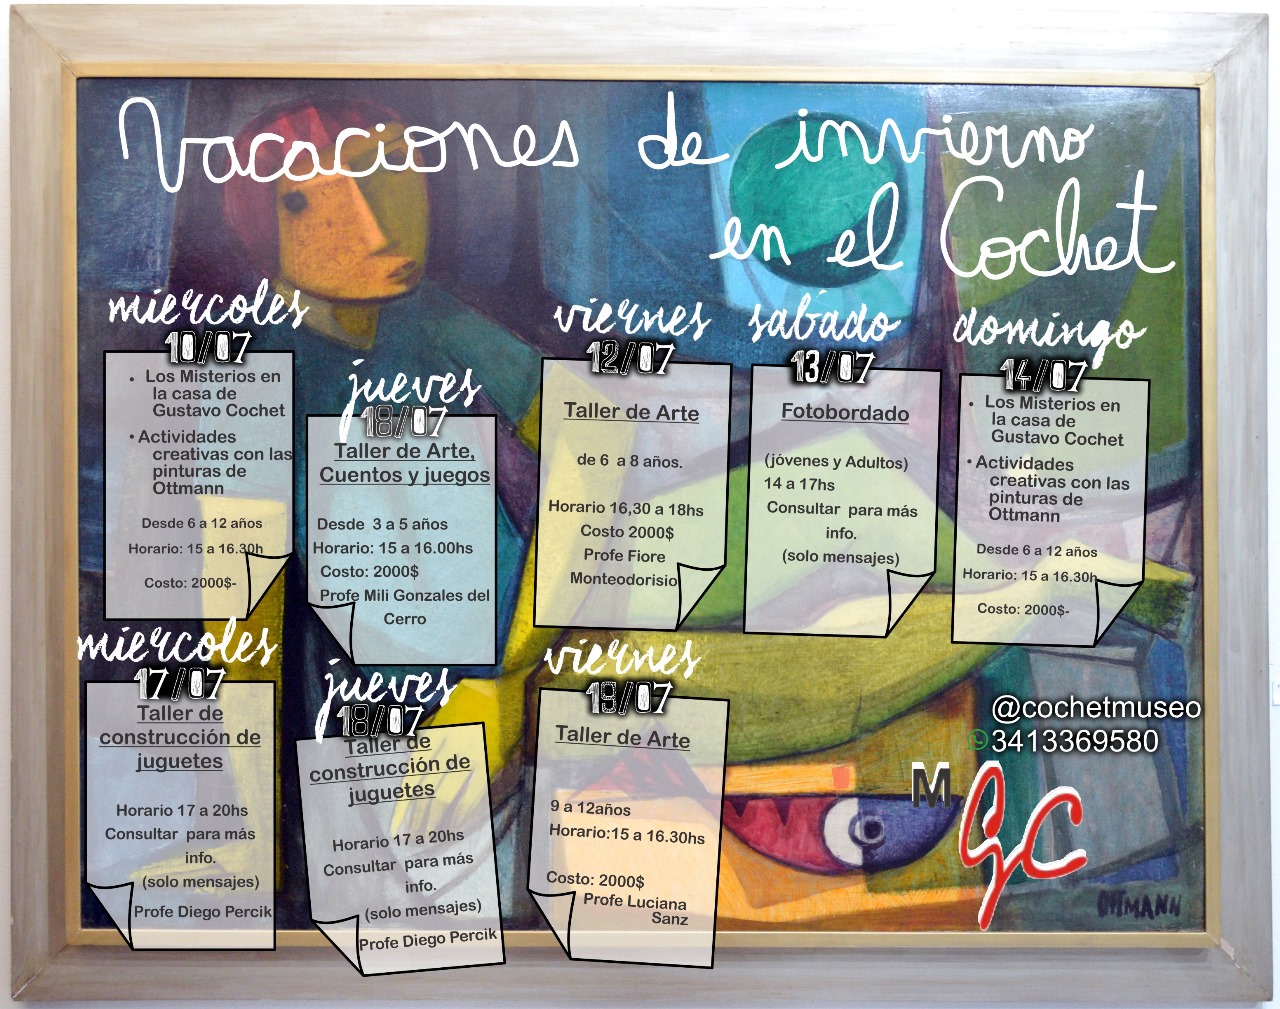 Vacaciones de invierno
en el Cochet
miercoles
10/07
• Los Misterios en
la casa de
Gustavo Cochet
• Actividades
creativas con las
pinturas de
Ottmann
Desde 6 a 12 años
Horario: 15 a 16.30h
Costo: 2000$-
jueves
18/07
Taller de Arte,
Cuentos y juegos
Desde 3 a 5 años
Horario: 15 a 16.00hs
Costo: 2000$
Profe Mili Gonzales del
Cerro
viernes
12/07
Taller de Arte
de 6 a 8 años.
Horario 16,30 a 18hs
Costo 2000$
Profe Fiore
Monteodorisio
sabado
13/07
Fotobordado
(jóvenes y Adultos)
14 a 17hs
Consultar para más
info.
(solo mensajes)
domingo
14/07
• Los Misterios en
la casa de
Gustavo Cochet
• Actividades
creativas con las
pinturas de
Ottmann
Desde 6 a 12 años
Horario: 15 a 16.30h
Costo: 2000$-
miercoles
17/07
Taller de
construcción de
juguetes
Horario 17 a 20hs
Consultar para más
info.
(solo mensajes)
Profe Diego Percik
jueves
18/07
Taller de
construcción de
juguetes
Horario 17 a 20hs
Consultar para más
info.
(solo mensajes)
Profe Diego Percik
viernes
19/07
Taller de Arte
9 a 12años
Horario:15 a 16.30hs
Costo: 2000$
Profe Luciana
Sanz
@cochetmuseo
3413369580
M
GC
OTTMANN